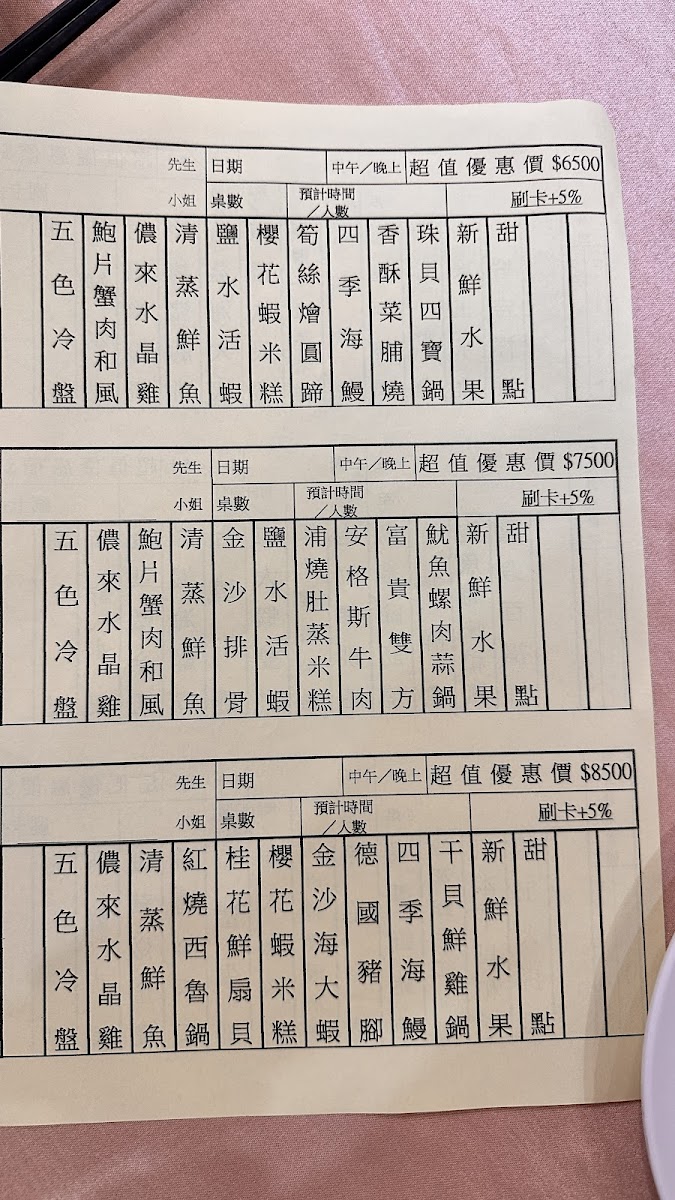 先生 日期 中午/晚上 超值優惠價 $6500
小姐 桌數 預計時間/人數 刷卡+5%
五色冷盤
鮑片蟹肉和風
儂來水晶雞
清蒸鮮魚
鹽水活蝦
櫻花蝦米糕
筍絲燴圓蹄
四季海鰻
香酥菜脯燒
珠貝四寶鍋
新鮮水果
甜點
先生 日期 中午/晚上 超值優惠價 $7500
小姐 桌數 預計時間/人數 刷卡+5%
五色冷盤
儂來水晶雞
鮑片蟹肉和風
清蒸鮮魚
金沙排骨
鹽水活蝦
浦燒肚蒸米糕
安格斯牛肉
富貴雙方
魷魚螺肉蒜鍋
新鮮水果
甜點
先生 日期 中午/晚上 超值優惠價 $8500
小姐 桌數 預計時間/人數 刷卡+5%
五色冷盤
儂來水晶雞
清蒸鮮魚
紅燒西魯鍋
桂花鮮扇貝
櫻花蝦米糕
金沙海大蝦
德國豬腳
四季海鰻
干貝鮮雞鍋
新鮮水果
甜點